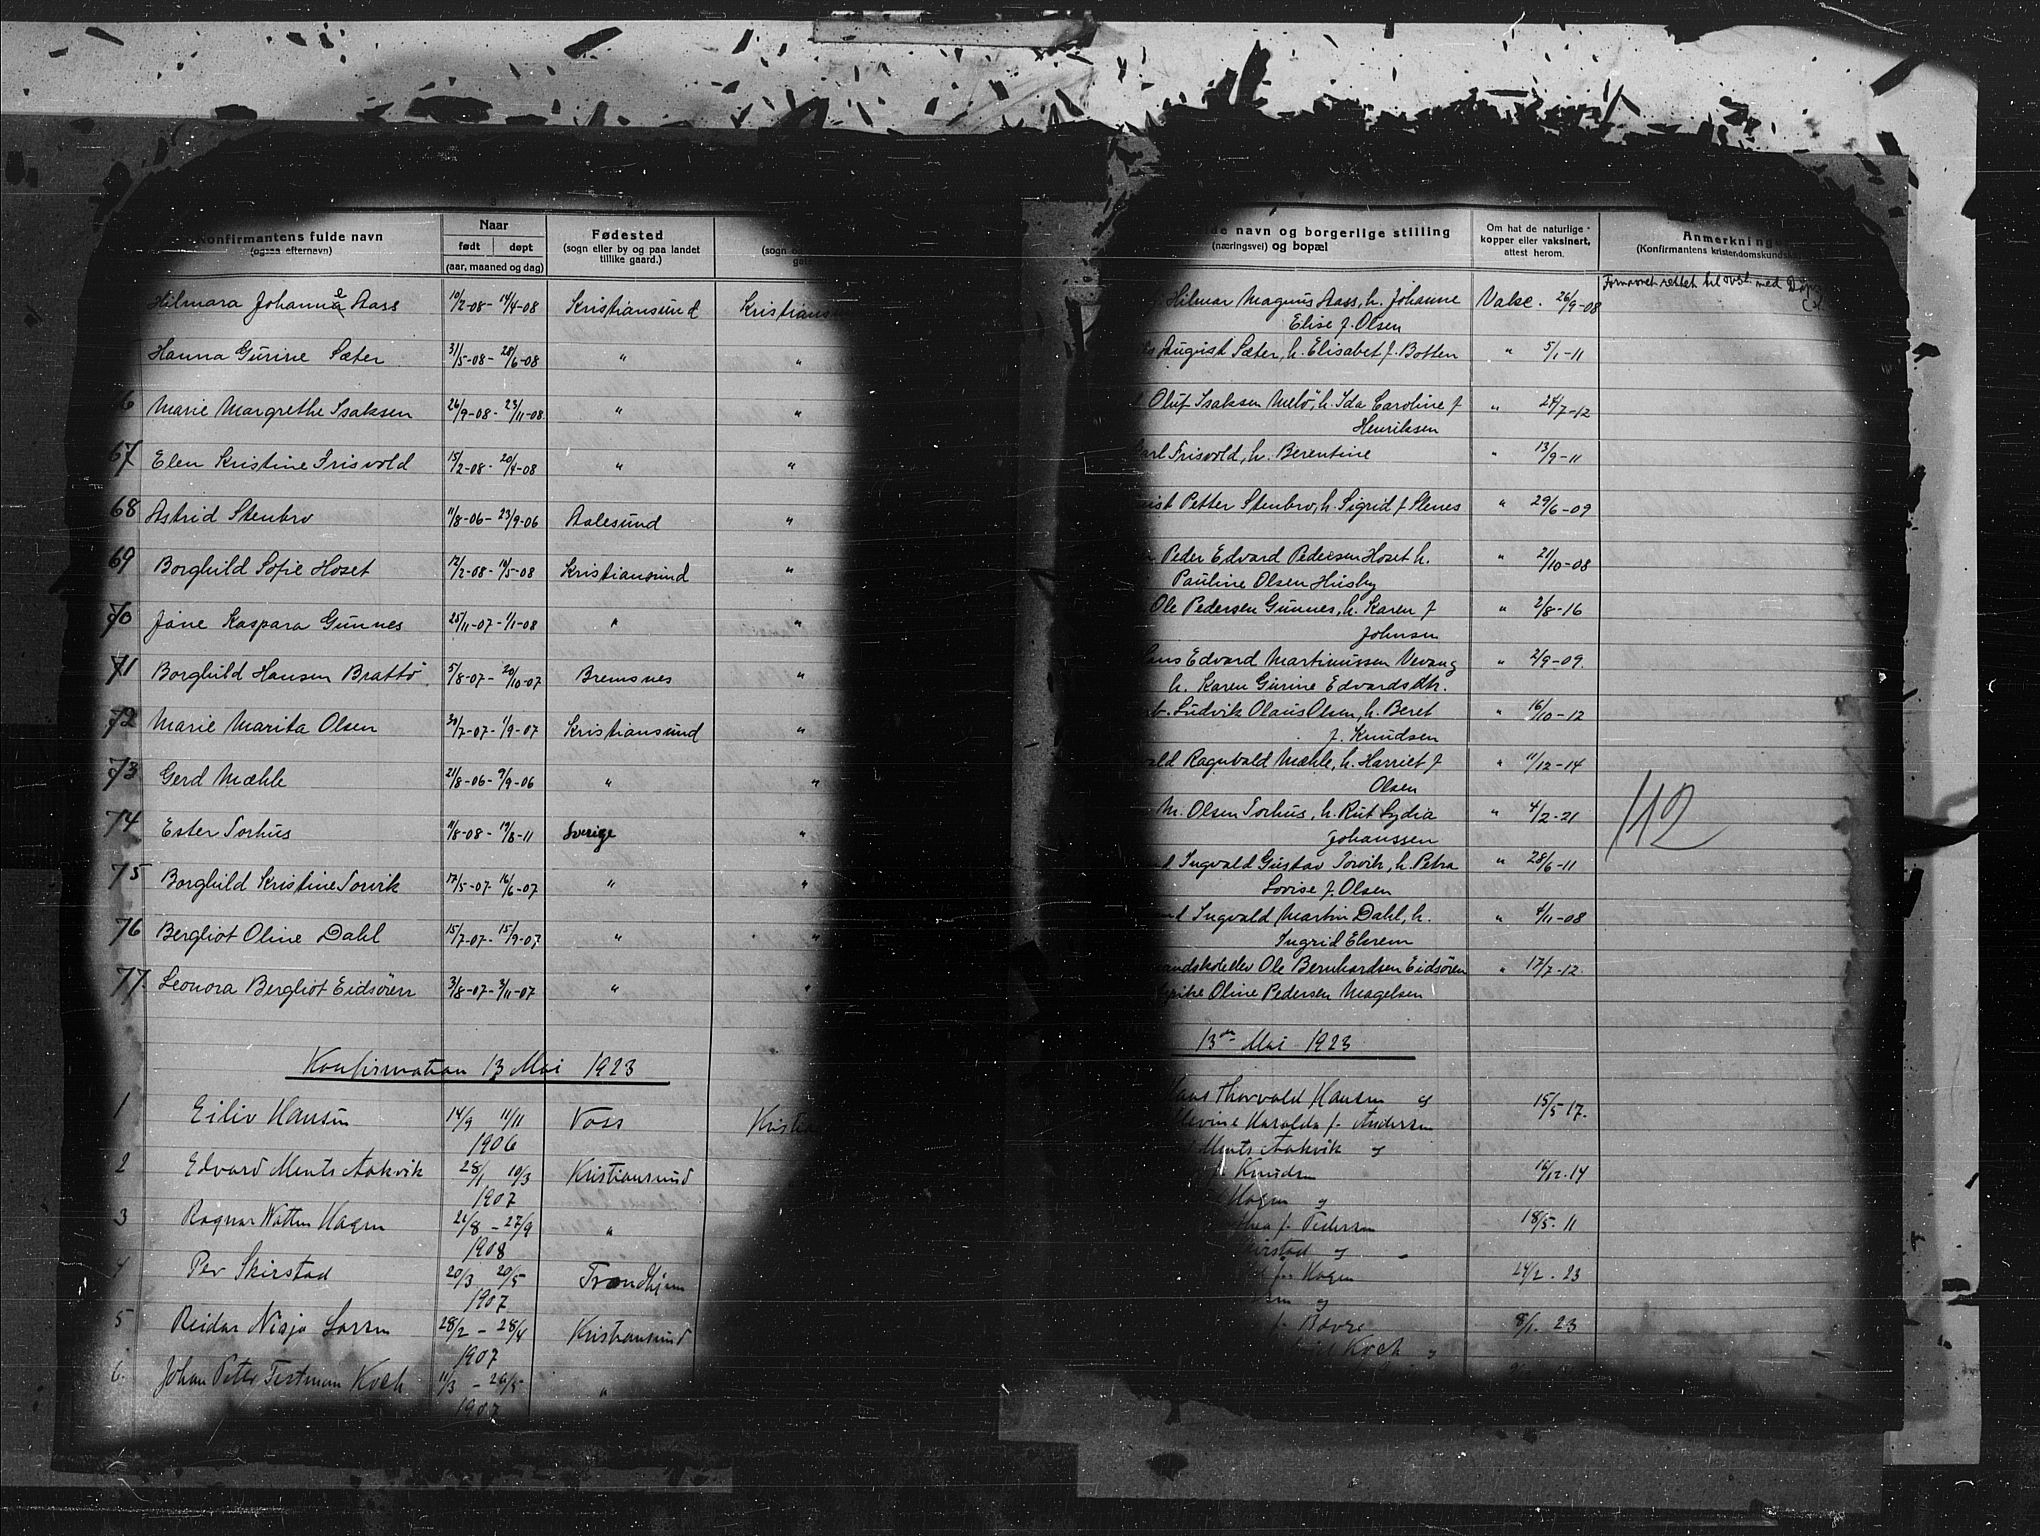 Konfirmantens fulde navn
(ogsaa efternavn)
Naar
født døpt
(aar, maaned og dag)
Fødested
(sogn eller by og paa landet
tillike gaard.)
Hilmara Johanna e Aass 10/2-08 - 14/4-08 Kristiansund
Hanna Gurine Sæter 31/5-08 - 28/6-08 "
Marie Margrethe Isaksen 26/9-08 - 23/11-08 " "
67 Elen Kristine Frisvold 15/2-08 - 20/4-08 " "
68 Astrid Stenbro 11/8-06 - 23/9-06 Aalesund "
69 Borghild Sofie Hoset 12/2-08 - Kristiansund "
70 Jane Kaspara Gunnes 25/11-07 - 1/1-08 " "
71 Borghild Hansen Brattö 5/8-07 - 20/10-07 Bremsnes "
72 Marie Marita Olsen 30/7-07 - 1/9-07 Kristiansund "
73 Gerd Mæhle 21/8-06 - 9/9-06 " "
74 Ester Torhus 11/8-08 - Sverige "
75 Borghild Kristine Torvik 17/5-07 - 16/6-07 " "
76 Bergliot Oline Dahl 15/7-07 - 15/9-07 " "
77. Leonora Bergliot Eidsören 3/8-07 - 3/11-07 " "
Konfirmation 13 Mai 1923
1 Eiliv Hansen 14/9 11/11 Voss
1906
2 Edvard Ments Aakvik 28/1 10/3 Kristiansund
1907
3 Ragnar Hagen 27/9 "
1908
4 Per Skirstad 20/3 20/5 Trondhjem
1907
5 Reidar Larsen 28/2 - 28/4 Kristiansund
1907
6. Johan Peter Koch 11/3 - 26/5 "
1907
navn og borgerlige stilling
(næringsvei) og bopæl
Om hat de naturlige
kopper eller vaksinert,
attest herom.
Anmerkninge
(Konfirmantens kristendomskundsk
Hilmar Magnus Aass, h. Johanne Vakc. 26/9-08
Elise f. Olsen
August Sæter, h. Elisabet f. Botten " 5/1-11
Oluf Isaksen Melö, h. Ida Caroline f " 24/7-12
Henriksen
Frisvold, h. Berentine " 13/9-11
Petter Stenbro, h. Sigrid f Slenes " 29/6-09
Peder Edvard Pedersen Hoset h. " 21/10-08
Pauline Olsen Husby
Ole Pedersen Gunnes, h. Karen f " 2/8-16
Johnsen
Edvard Martinussen Vevang " 2/9-09.
h. Karen Gurine Edvardsdtr.
Ludvik Olaus Olsen, h. Beret " 16/10-12
f. Knudsen
Ragnvald Mæhle, h. Harriet f " 11/12-14
Olsen
M. Olsen Torhus, h. Rut Lydia " 4/2-21
Johanssen
112
Ingvald Gustav Torvik, h. Petra " 28/6-11
Lovise f. Olsen
Ingvald Martin Dahl, h. " 4/11-08
Ingrid Ekrem
Ole Bernhardsen Eidsören " 17/7-12.
Oline Pedersen Magelsen
13de Mai 1923
Hans Thorvald Hansen og 15/5 17.
Haralda f. Andersen
Ments Aakvik og
Knudsen 14
Hagen og
f. Pedersen 18/5-11
og
Hagen 24/2-23
og
8/1-23
Koch og